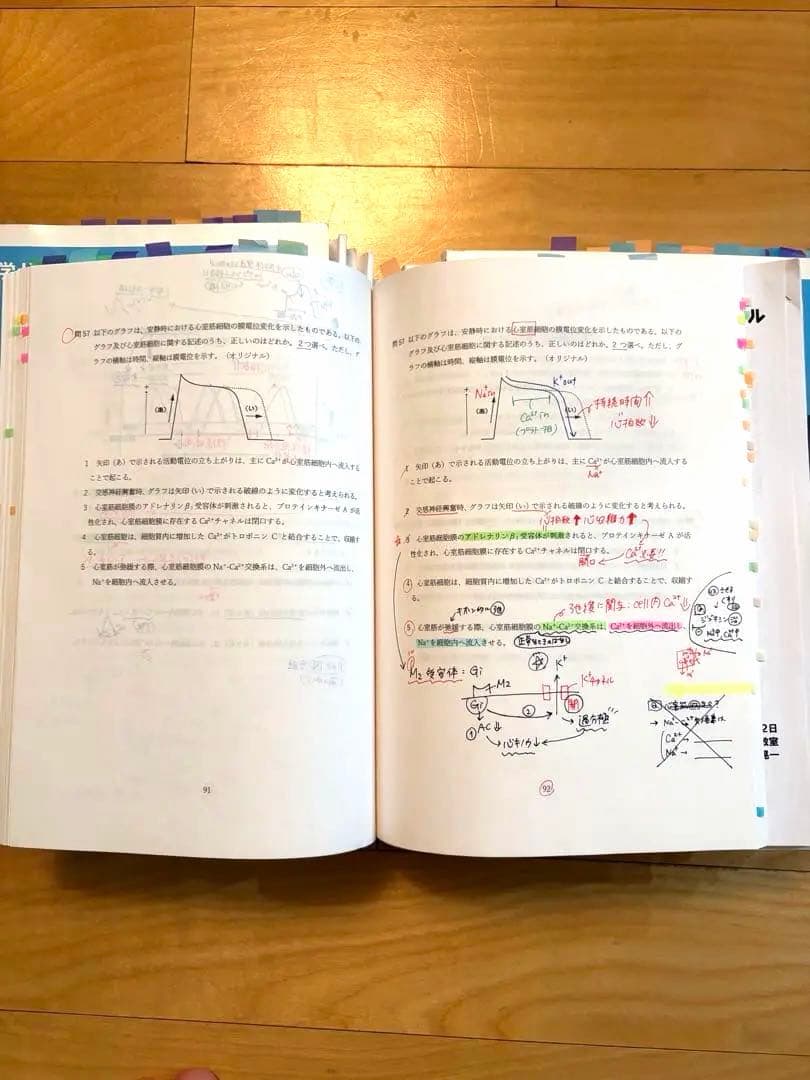 問57 以下のグラフは、安静時における心室筋細胞の膜電位変化を示したものである。以下の
グラフ及び心室筋細胞に関する記述のうち、正しいのはどれか。2つ選べ。ただし、グ
ラフの横軸は時間、縦軸は膜電位を示す。（オリジナル）
+
(あ)
(い)
-
1 矢印（あ）で示される活動電位の立ち上がりは、主に Ca²⁺ が心室筋細胞内へ流入する
ことで起こる。
2 交感神経興奮時、グラフは矢印（い）で示される破線のように変化すると考えられる。
3 心室筋細胞膜のアドレナリン β₁ 受容体が刺激されると、プロテインキナーゼ A が活
性化され、心室筋細胞膜に存在する Ca²⁺ チャネルは閉口する。
4 心室筋細胞は、細胞質内に増加した Ca²⁺ がトロポニン C と結合することで、収縮す
る。
5 心室筋が弛緩する際、心室筋細胞膜の Na⁺-Ca²⁺ 交換系は、Ca²⁺ を細胞外へ流出し、
Na⁺ を細胞内へ流入させる。
91
問57 以下のグラフは、安静時における心室筋細胞の膜電位変化を示したものである。以下の
グラフ及び心室筋細胞に関する記述のうち、正しいのはどれか。2つ選べ。ただし、グ
ラフの横軸は時間、縦軸は膜電位を示す。（オリジナル）
Na⁺in
K⁺out
+
(あ)
Ca²⁺in
(プラトー相)
(い)
持続時間↑
心拍数↓
-
1 矢印（あ）で示される活動電位の立ち上がりは、主に Ca²⁺ が心室筋細胞内へ流入する
Na⁺
ことで起こる。
2 交感神経興奮時、グラフは矢印（い）で示される破線のように変化すると考えられる。
心拍数↑ 心収縮力↑
3 心室筋細胞膜のアドレナリン β₁ 受容体が刺激されると、プロテインキナーゼ A が活
性化され、心室筋細胞膜に存在する Ca²⁺ チャネルは閉口する。
開口
4 心室筋細胞は、細胞質内に増加した Ca²⁺ がトロポニン C と結合することで、収縮す
る。
弛緩に関与：cell内 Ca²⁺↓
5 心室筋が弛緩する際、心室筋細胞膜の Na⁺-Ca²⁺ 交換系は、Ca²⁺ を細胞外へ流出し、
Na⁺ を細胞内へ流入させる。
M₂ 受容体：Gi
K⁺
M₂
K⁺チャネル
Gi
②
開
過分極
① AC↓
心キノウ↓
Ca²⁺ →
Na⁺ →
92
ル
2日
教室